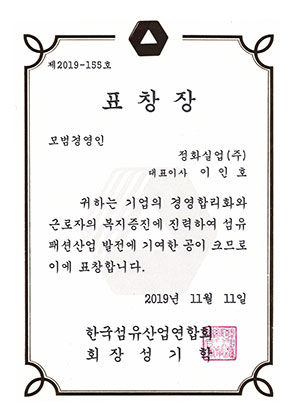 제2019-155호
표 창 장
모범경영인
정화실업(주)
대표이사 이 인 호
귀하는 기업의 경영합리화와
근로자의 복지증진에 진력하여 섬유
패션산업 발전에 기여한 공이 크므로
이에 표창합니다.
2019년 11월 11일
한국섬유산업연합회
회 장 성 기 학